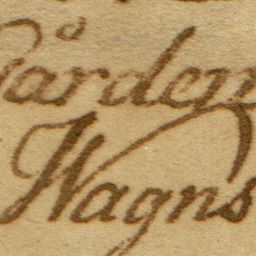 Gården
Wagns